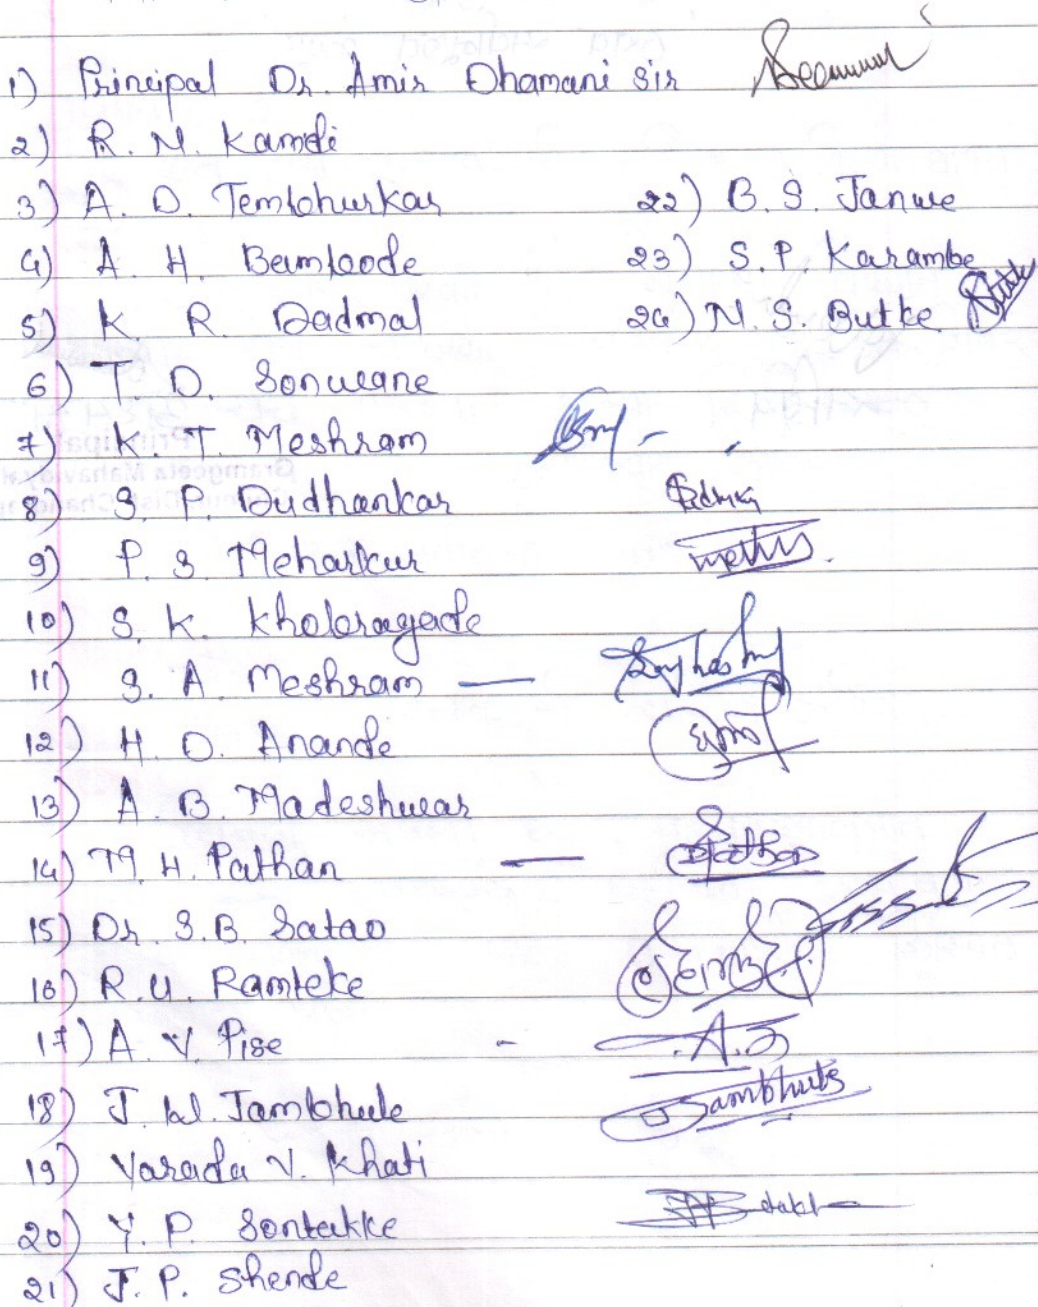 1) Principal Dr. Amir Dhamani Sir
2) R. N. Kamdi
3) A. D. Tembhurkar
4) A. H. Bamboode
5) K R. Dadmal
6) T D. Sonwane
7) K. T. Meshram
8) S. P. Dudhankar
9) P. S. Meharkur
10) S. K. Khobragade
11) S. A. Meshram —
12) H. D. Anande
13) A. B. Madeshwar
14) M. H. Pathan —
15) Dr. S.B. Satao
16) R.U. Ramteke
17) A. V. Pise - A.
18) J. W. Jambhule Jambhule
19) Varada V. Khati
20) Y. P. Sontakke
21) J. P. Shende
22) B. S. Janwe
23) S. P. Karambe
24) N. S. Butke